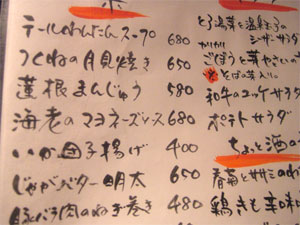 テールわんたんスープ 680
つくねの月見焼き 650
蓮根まんじゅう 580
海老のマヨネーズソース 680
いか団子揚げ 400
じゃがバター明太 650
豚バラ肉のねぎ巻き 480
とろ温菜と温玉子の
シーザーサラダ
カリカリ
ごぼうと芽やさいの
そばの芽入り
和牛のユッケサラダ
ポテトサラダ
ちょっと酒の
春菊とササミのわさ
鶏きも辛口味